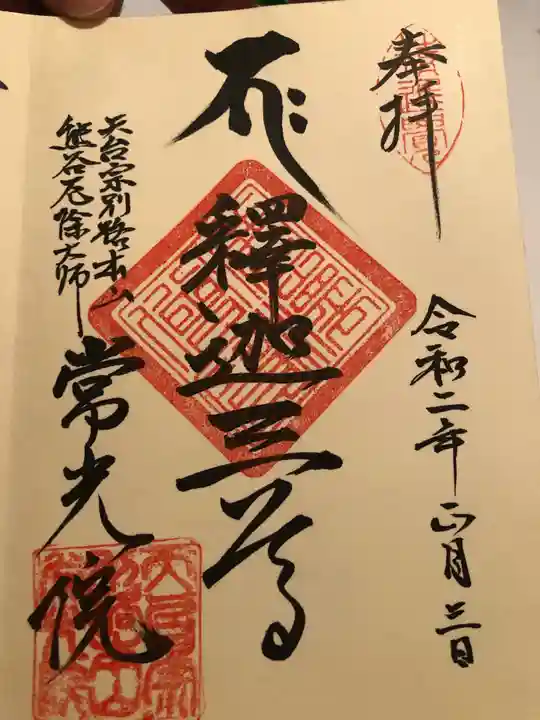 奉拝
令和二年正月三日
釋迦三尊
天台宗別格本山
熊谷厄除大师
常光院